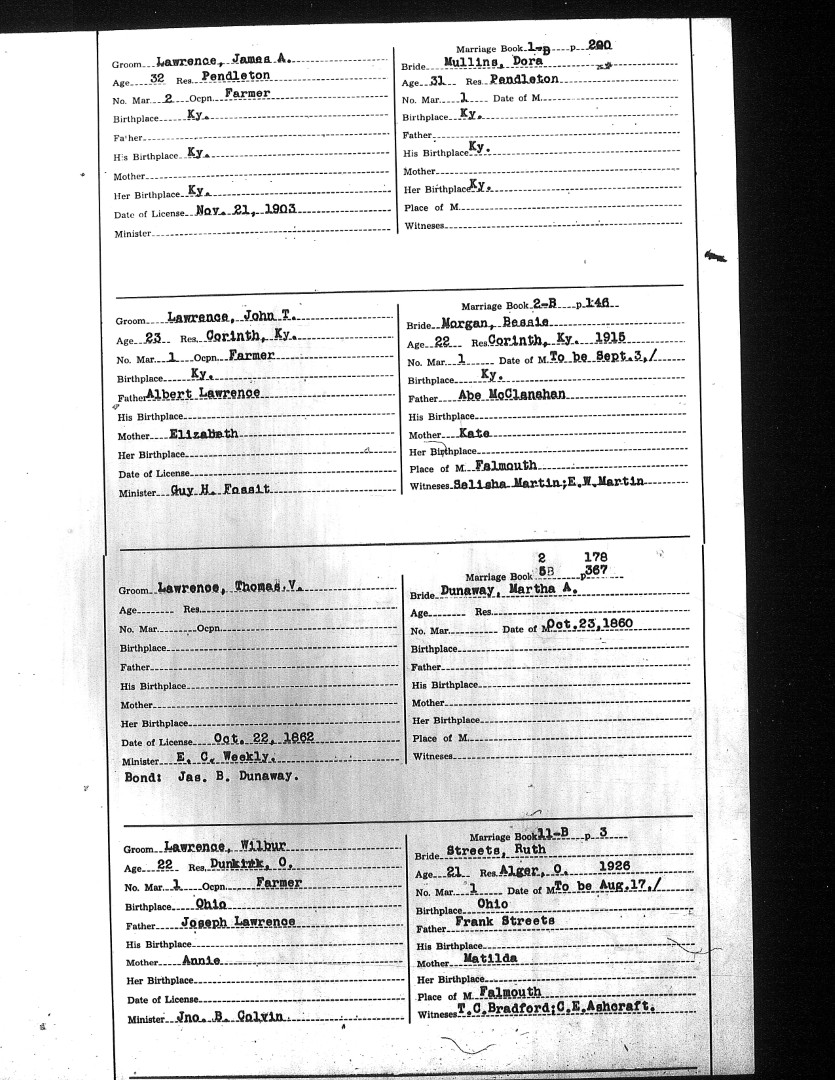 Groom Lawrence, James A.
Age 32 Res. Pendleton
No. Mar. 2 Ocpn. Farmer
Birthplace Ky.
Father
His Birthplace Ky.
Mother
Her Birthplace Ky.
Date of License Nov. 21, 1903
Minister
Marriage Book 1-B p. 290
Bride Mullins, Dora
Age 31 Res. Pendleton
No. Mar. 1 Date of M.
Birthplace Ky.
Father
His Birthplace Ky.
Mother
Her Birthplace Ky.
Place of M.
Witneses
Groom Lawrence, John T.
Age 23 Res. Corinth, Ky.
No. Mar. 1 Ocpn. Farmer
Birthplace Ky.
Father Albert Lawrence
His Birthplace
Mother Elizabeth
Her Birthplace
Date of License
Minister Guy H. Fossit
Marriage Book 2-B p. 146
Bride Morgan, Bessie
Age 22 Res. Corinth, Ky. 1915
No. Mar. 1 Date of M. To be Sept.3,/
Birthplace Ky.
Father Abe McClanahan
His Birthplace
Mother Kate
Her Birthplace
Place of M. Falmouth
Witneses Selisha Martin;E.W.Martin
Groom Lawrence, Thomas V.
Age Res.
No. Mar. Ocpn.
Birthplace
Father
His Birthplace
Mother
Her Birthplace
Date of License Oct. 22, 1862
Minister E. C. Weekly.
Bond: Jas. B. Dunaway.
2 178
Marriage Book 5B p. 367
Bride Dunaway, Martha A.
Age Res.
No. Mar. Date of M. Oct.23,1860
Birthplace
Father
His Birthplace
Mother
Her Birthplace
Place of M.
Witneses
Groom Lawrence, Wilbur
Age 22 Res. Dunkirk, O.
No. Mar. 1 Ocpn. Farmer
Birthplace Ohio
Father Joseph Lawrence
His Birthplace
Mother Annie
Her Birthplace
Date of License
Minister Jno. B. Colvin
Marriage Book 11-B p. 3
Bride Streets, Ruth
Age 21 Res. Alger, O. 1926
No. Mar. 1 Date of M. To be Aug.17,/
Birthplace Ohio
Father Frank Streets
His Birthplace
Mother Matilda
Her Birthplace
Place of M. Falmouth
Witneses T.C.Bradford;C.E.Ashcraft.